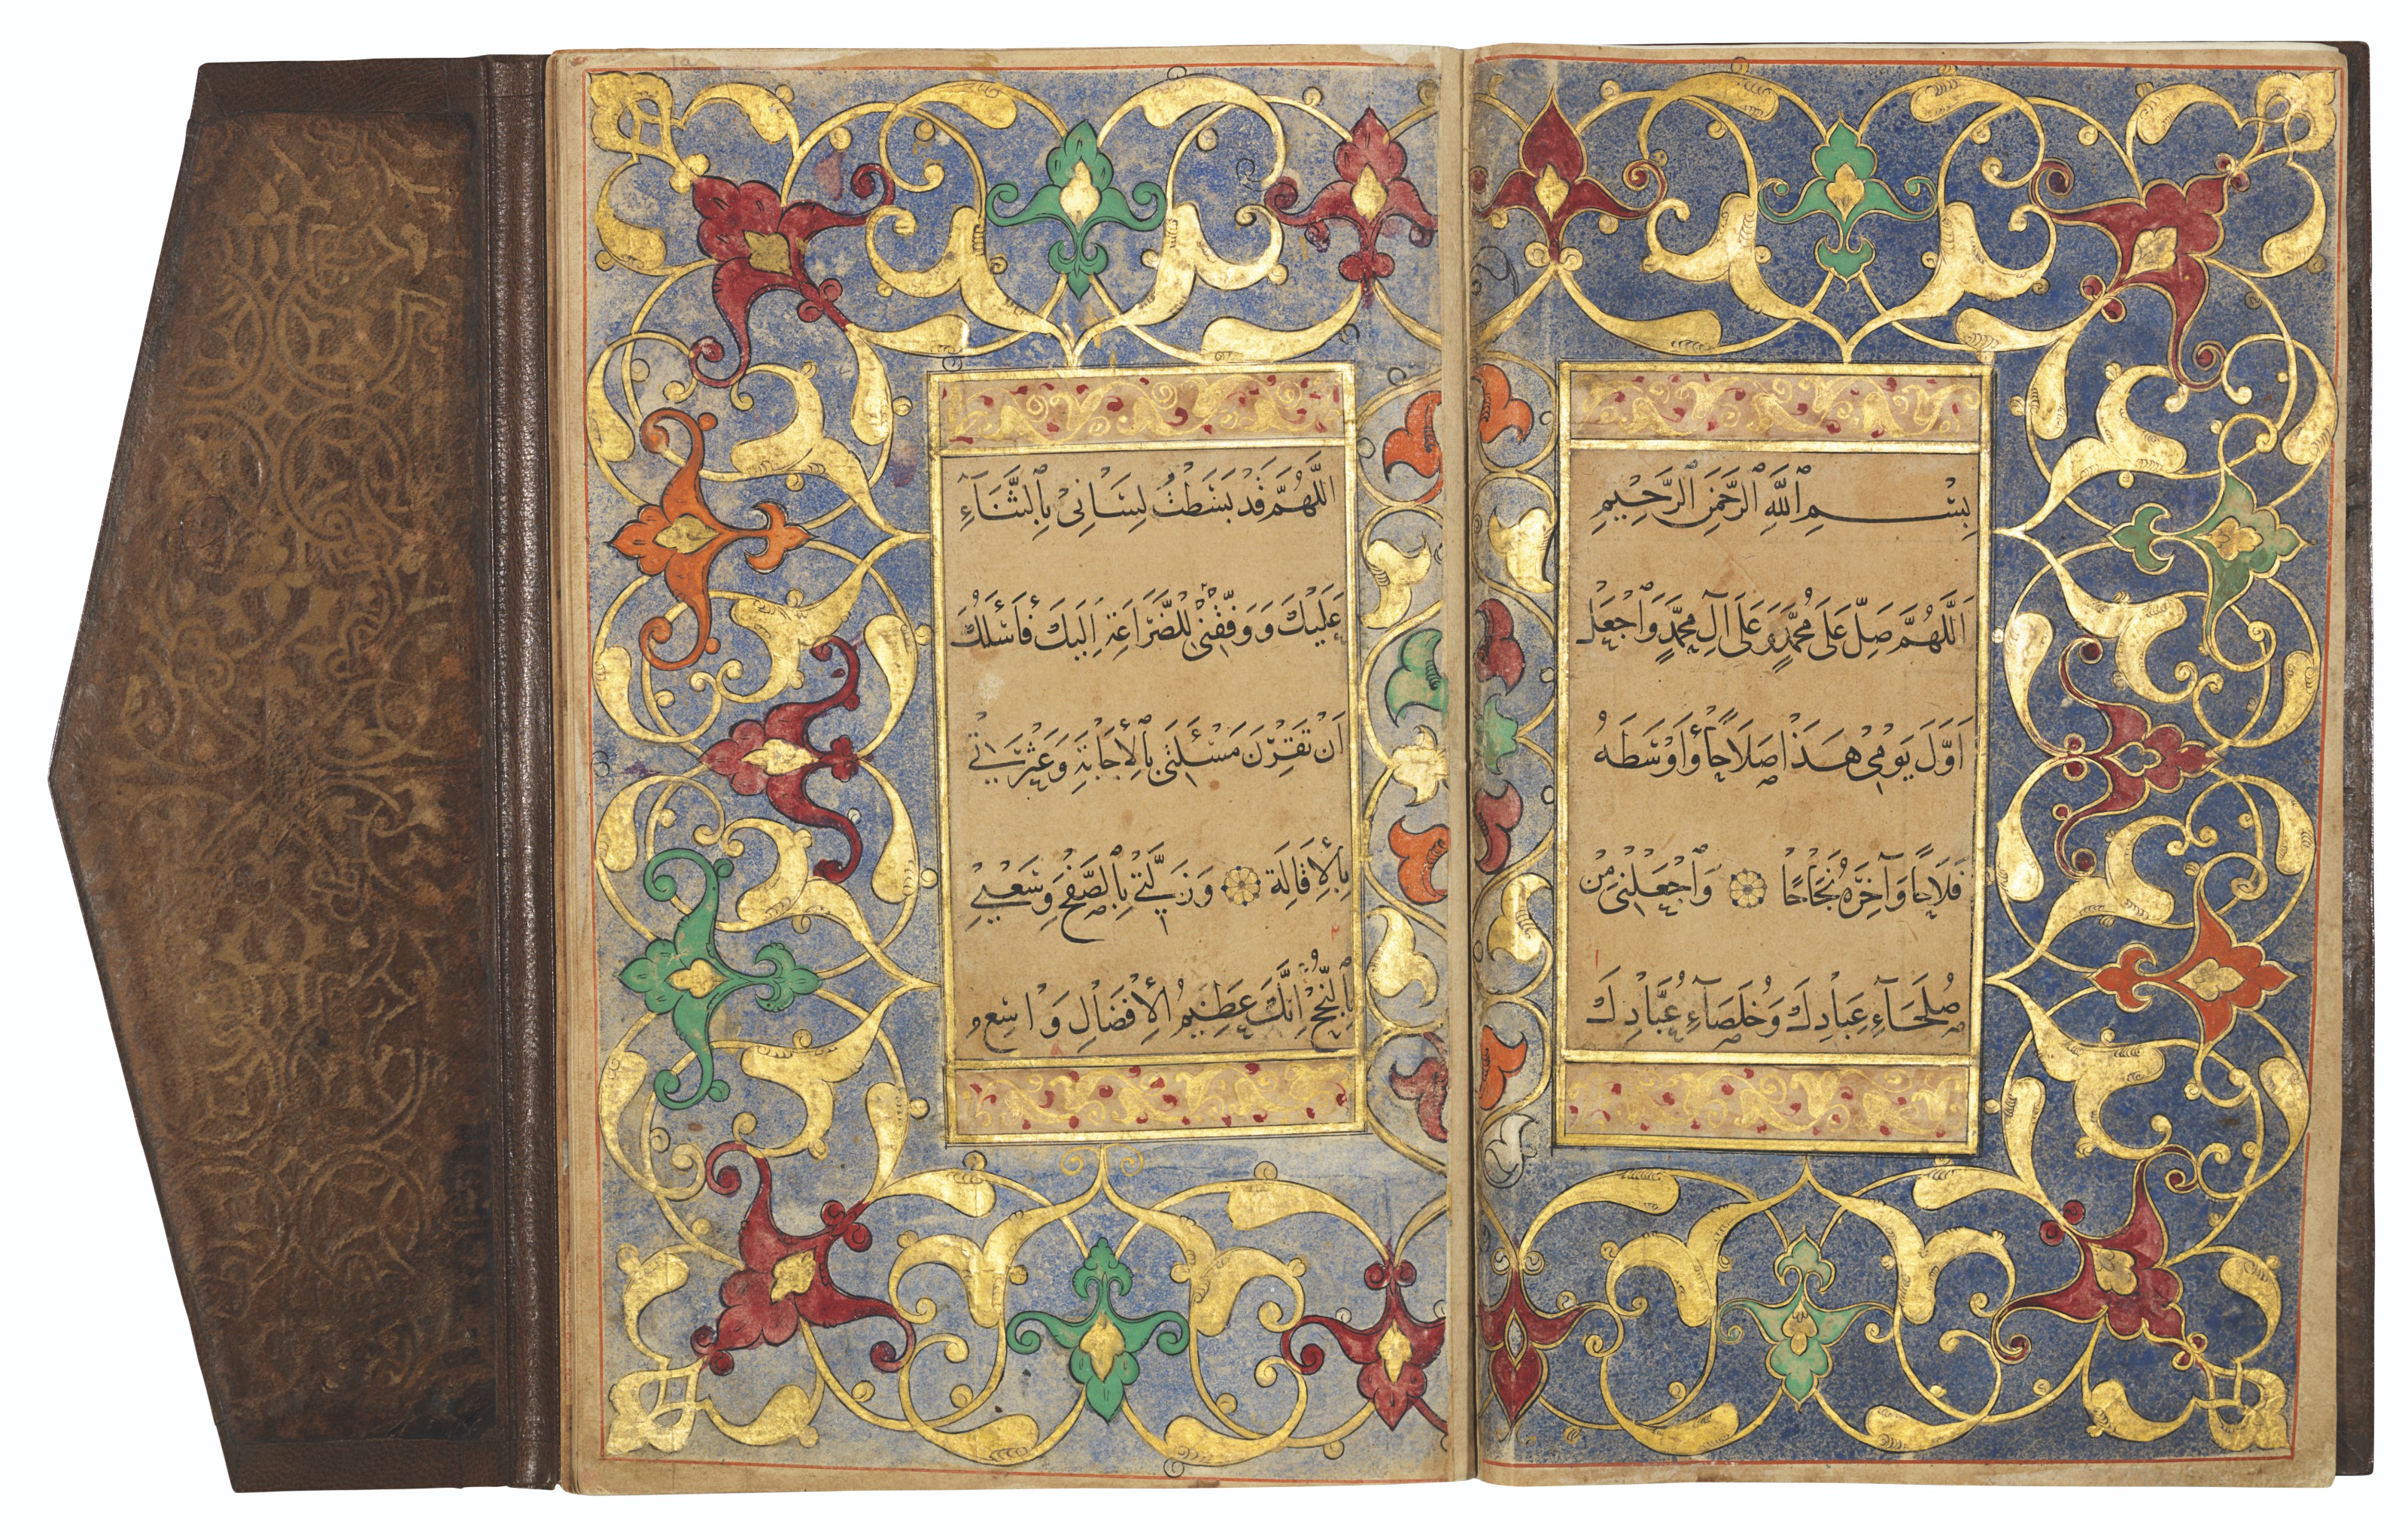 بِسْمِ ٱللَّهِ ٱلرَّحْمَنِ ٱلرَّحِيمِ
اَللَّهُمَّ صَلِّ عَلَى مُحَمَّدٍ وَعَلَى آلِ مُحَمَّدٍ وَٱجْعَلْ
اَوَّلَ يَوْمِي هَذَا صَلَاحًا وَاَوْسَطَهُ
فَلَاحًا وَآخِرَهُ نَجَاحًا وَٱجْعَلْنِي مِنْ
صُلَحَآءِ عِبَادِكَ وَخُلَصَآءِ عُبَّادِكَ
١
اللَّهُمَّ قَدْ بَسَطْتُ لِسَانِي بِٱلثَّنَآءِ
عَلَيْكَ وَوَفِّقْنِي لِلضَّرَاعَةِ اِلَيكَ فَأَسْئَلُكَ
اَنْ تَقْرِنَ مَسْئَلَتِي بِٱلْأِجَابَةِ وَعَثْرَتِي
بِٱلْأِقَالَةِ وَزَلَّتِي بِٱلصَّفْحِ وَسَعْيِي
٢
بِٱلنُّجْحِ اِنَّكَ عَظِيمُ الْأِفْضَالِ وَاسِعُ